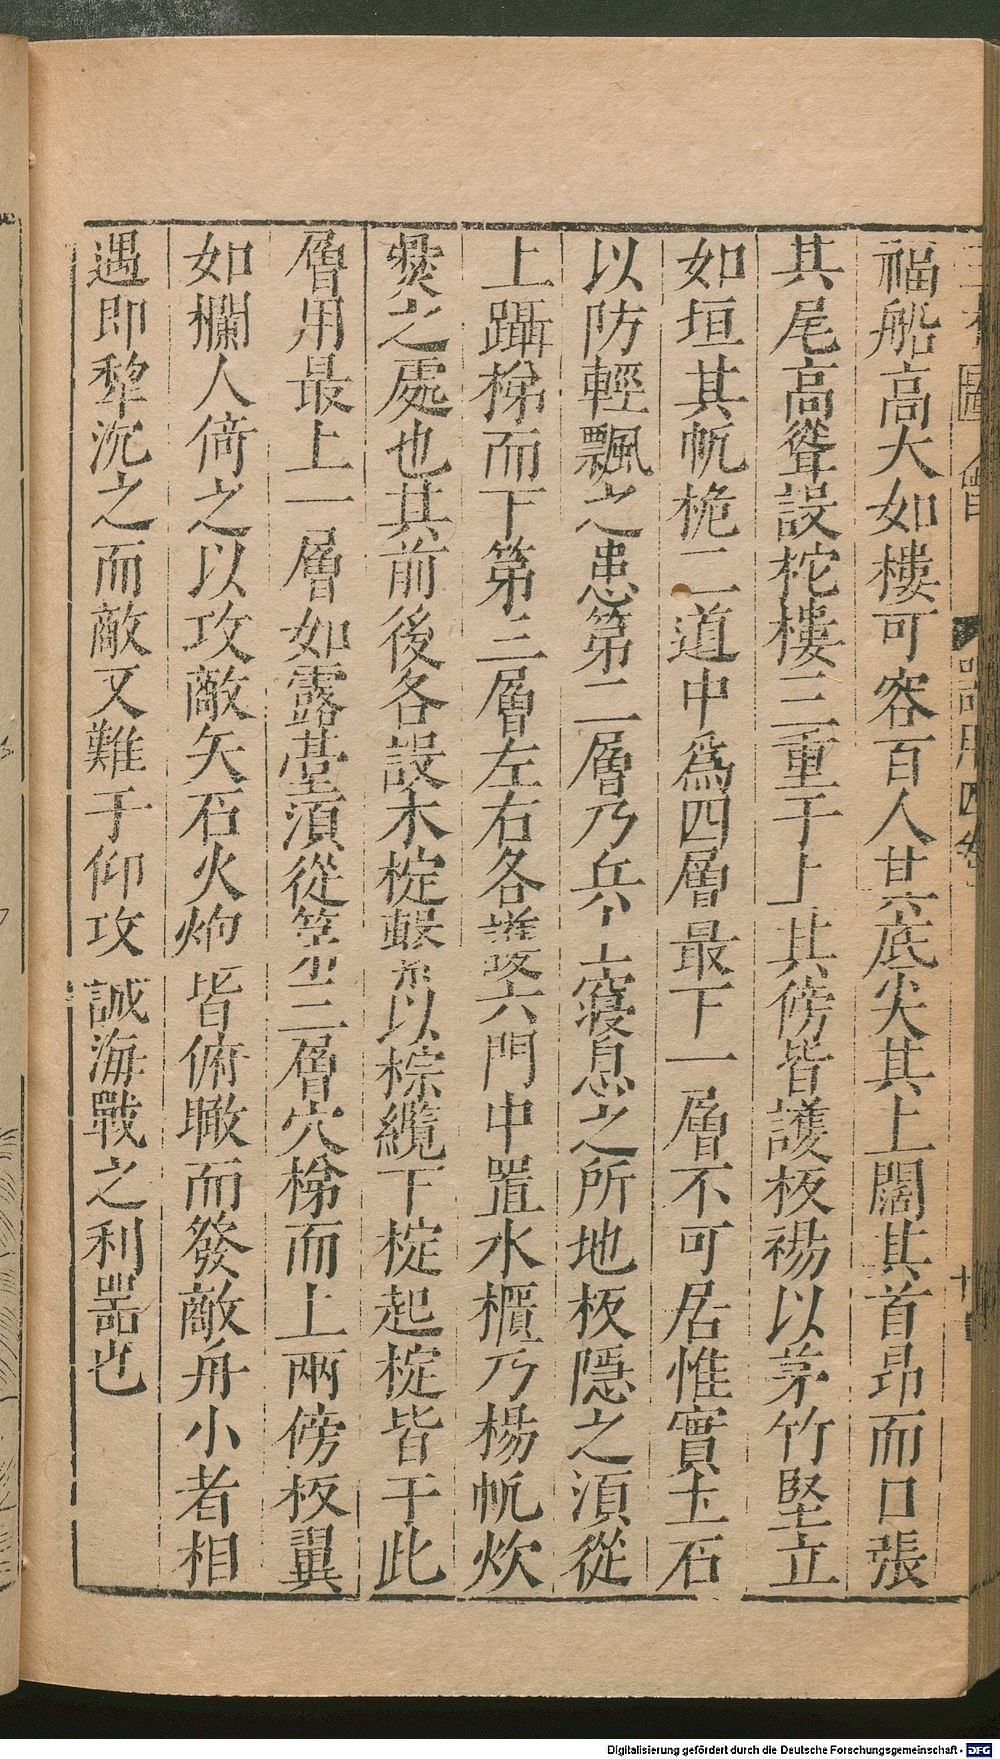 福船高大如樓可容百人其底尖其上闊其首昂而口張
其尾高聳設柁樓三重于上其傍皆護板裼以茅竹堅立
如垣其帆桅二道中為四層最下一層不可居惟實土石
以防輕飄之患第二層乃兵士寢息之所地板隱之湏從
上躡梯而下第三層左右各 六門中置水櫃乃楊帆炊
爨之處也其前後各設木椗 以棕纜下椗起椗皆于此
層用最上一層如露臺湏從第三層穴梯而上兩傍板翼
如欄人倚之以攻敵矢石火炮皆俯瞰而發敵舟小者相
遇即犂沉之而敵又難于仰攻誠海戰之利噐也
圖會 器用四卷 十
Digitalisierung gefördert durch die Deutsche Forschungsgemeinschaft - DFG